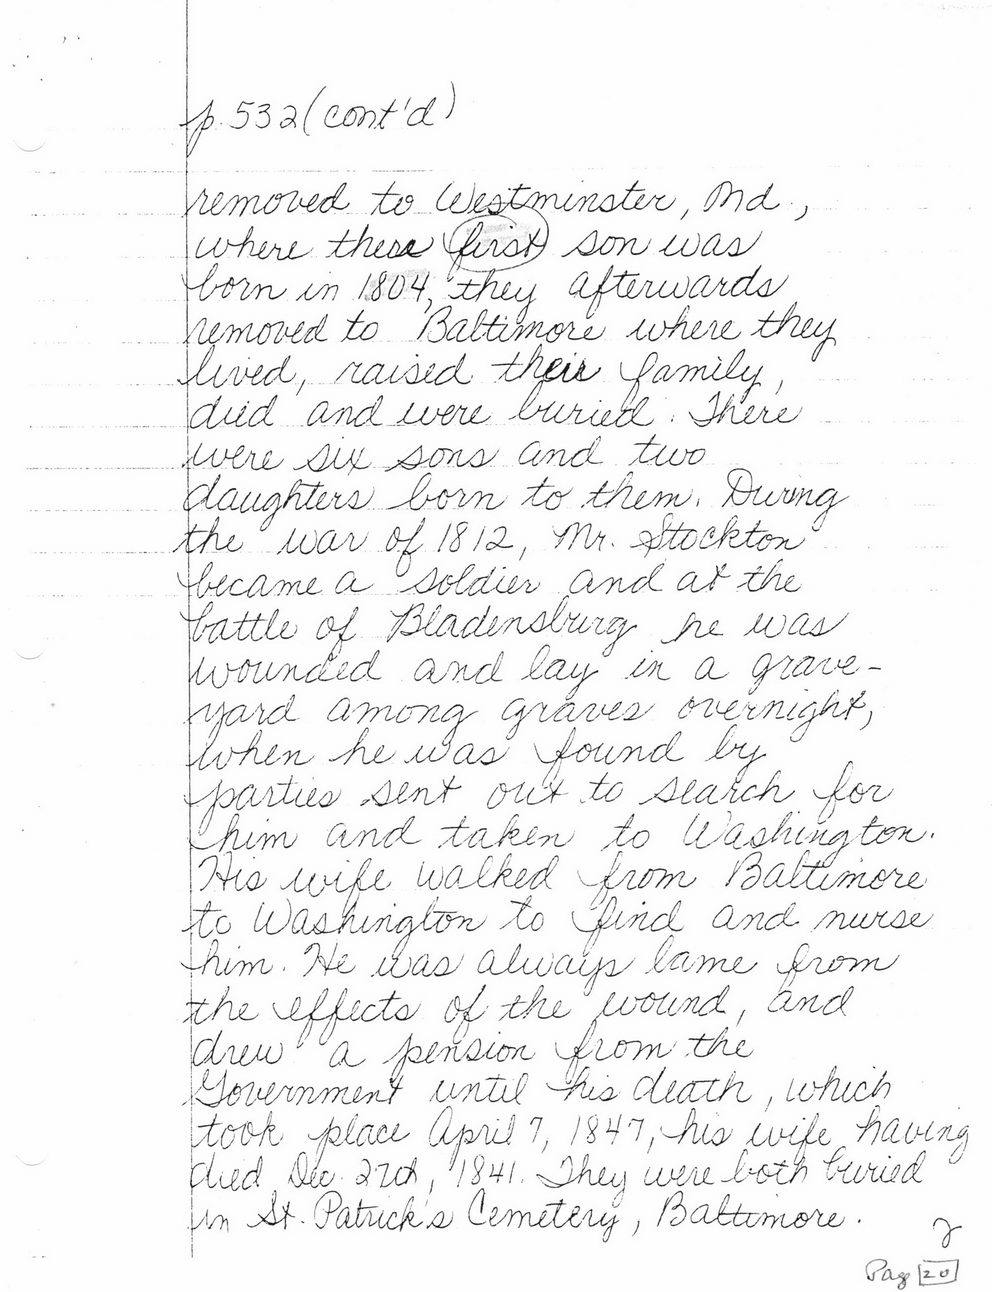 p. 532 (cont'd)
removed to Westminster, Md.,
where there first son was
born in 1804, they afterwards
removed to Baltimore where they
lived, raised their family,
died and were buried. There
were six sons and two
daughters born to them. During
the war of 1812, Mr. Stockton
became a soldier and at the
battle of Bladensburg he was
wounded and lay in a grave-
yard among graves overnight,
when he was found by
parties sent out to search for
him and taken to Washington.
His wife walked from Baltimore
to Washington to find and nurse
him. He was always lame from
the effects of the wound, and
drew a pension from the
Government until his death, which
took place April 7, 1847, his wife having
died Dec. 27th, 1841. They were both buried
in St. Patrick's Cemetery, Baltimore.
2
Pag 20